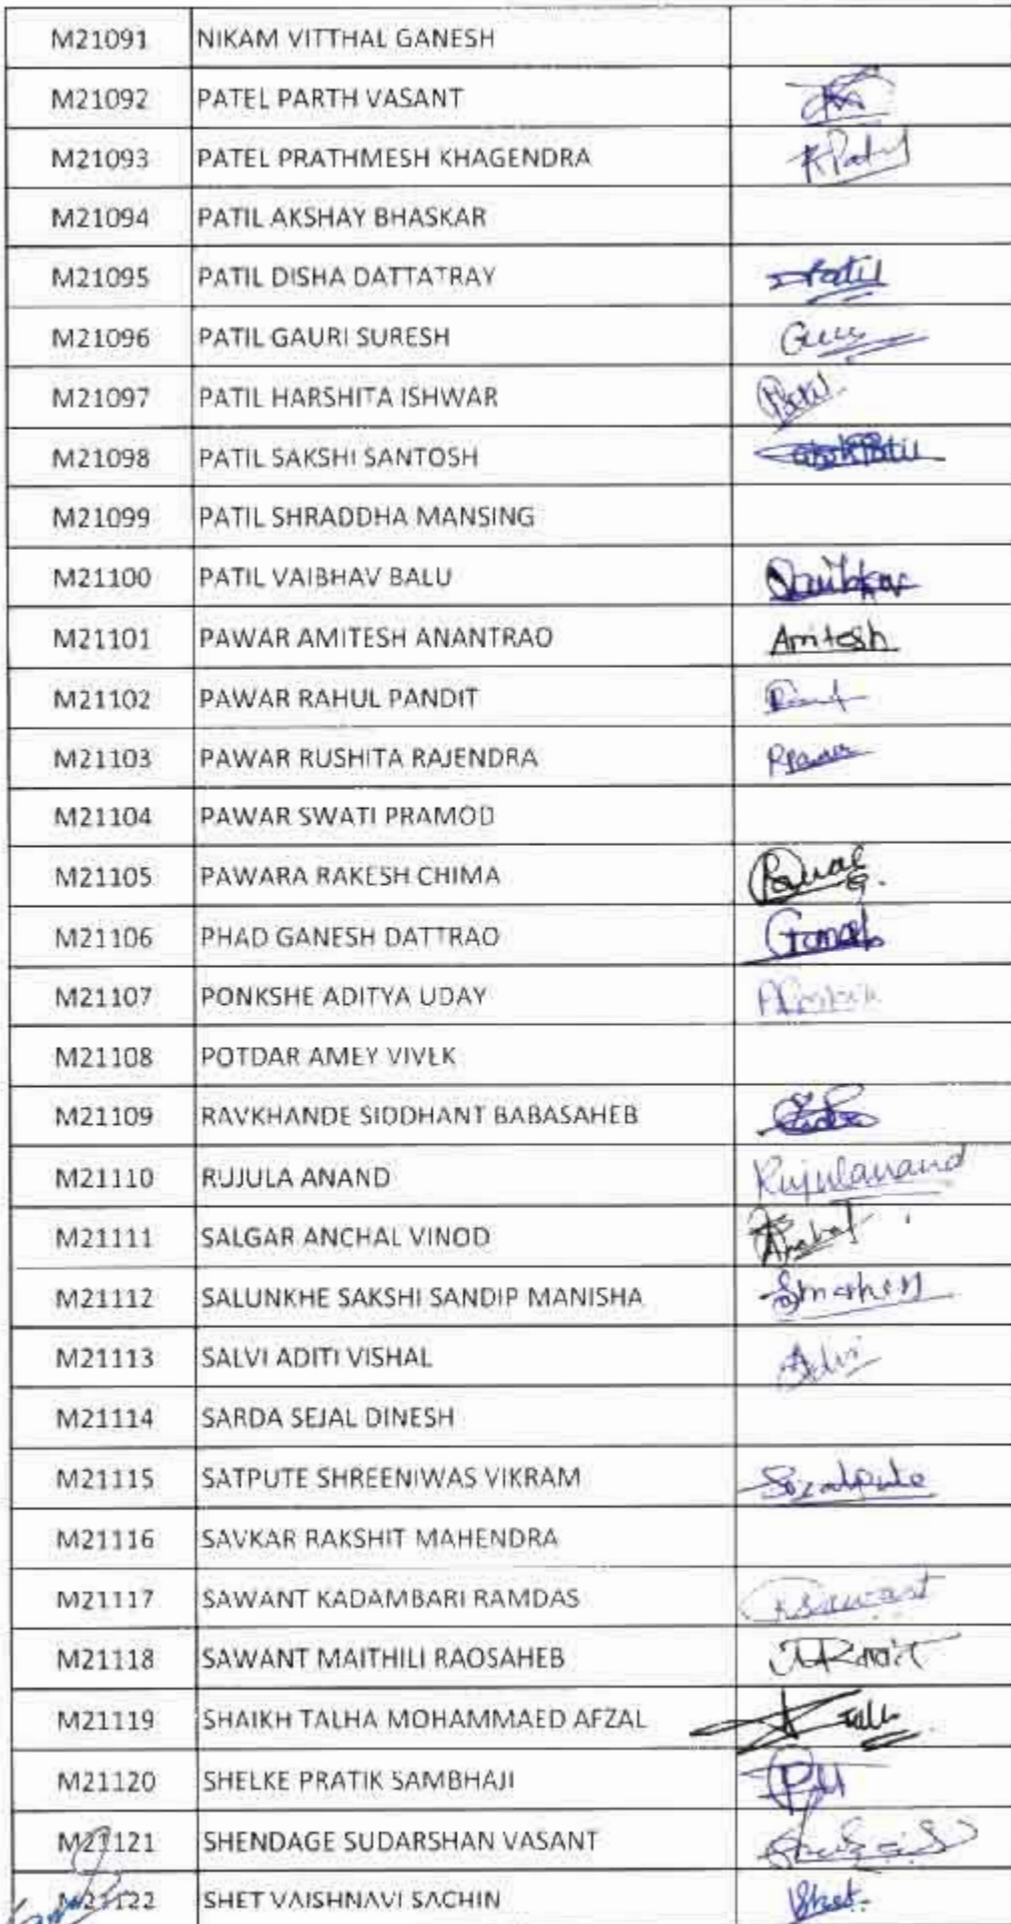 M21091 NIKAM VITTHAL GANESH
M21092 PATEL PARTH VASANT
M21093 PATEL PRATHMESH KHAGENDRA
M21094 PATIL AKSHAY BHASKAR
M21095 PATIL DISHA DATTATRAY Patil
M21096 PATIL GAURI SURESH
M21097 PATIL HARSHITA ISHWAR Patil
M21098 PATIL SAKSHI SANTOSH
M21099 PATIL SHRADDHA MANSING
M21100 PATIL VAIBHAV BALU
M21101 PAWAR AMITESH ANANTRAO Amitesh
M21102 PAWAR RAHUL PANDIT
M21103 PAWAR RUSHITA RAJENDRA
M21104 PAWAR SWATI PRAMOD
M21105 PAWARA RAKESH CHIMA
M21106 PHAD GANESH DATTRAO Ganesh
M21107 PONKSHE ADITYA UDAY
M21108 POTDAR AMEY VIVEK
M21109 RAVKHANDE SIDDHANT BABASAHEB
M21110 RUJULA ANAND Rujulanand
M21111 SALGAR ANCHAL VINOD
M21112 SALUNKHE SAKSHI SANDIP MANISHA
M21113 SALVI ADITI VISHAL
M21114 SARDA SEJAL DINESH
M21115 SATPUTE SHREENIWAS VIKRAM
M21116 SAVKAR RAKSHIT MAHENDRA
M21117 SAWANT KADAMBARI RAMDAS
M21118 SAWANT MAITHILI RAOSAHEB
M21119 SHAIKH TALHA MOHAMMAED AFZAL
M21120 SHELKE PRATIK SAMBHAJI
M21121 SHENDAGE SUDARSHAN VASANT
M21122 SHET VAISHNAVI SACHIN Shet